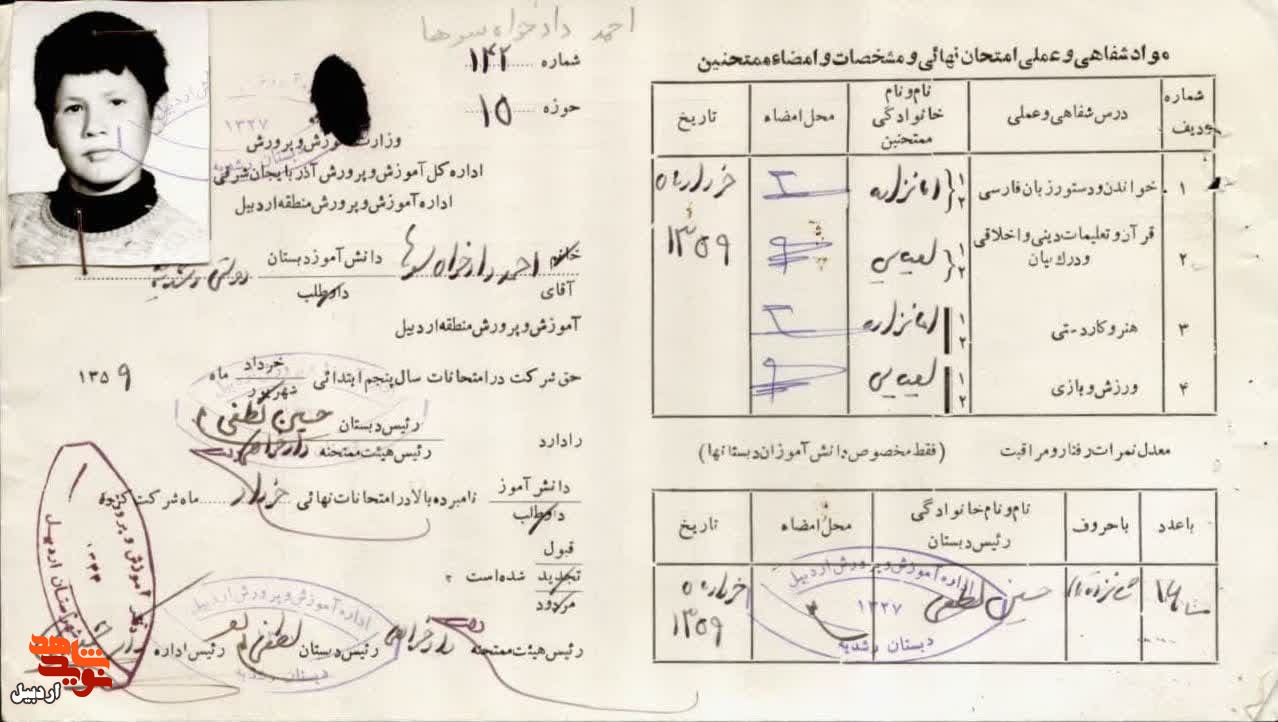 احمد دادخواه سوها
شماره ۱۴۲
حوزه ۱۵
وزارت آموزش و پرورش
اداره کل آموزش و پرورش آذربایجان شرقی
اداره آموزش و پرورش منطقه اردبیل
خانم
آقای
احمد دادخواه سوها
دانش آموز دبستان
داوطلب
دولتی رشدیه
آموزش و پرورش منطقه اردبیل
حق شرکت در امتحانات سال پنجم ابتدائی
خرداد
شهریور
ماه ۱۳۵۹
رئیس دبستان حسین لطفی
را دارد
رئیس هیئت ممتحنه دادخواهی
دانش آموز
داوطلب
نامبرده بالا در امتحانات نهائی خرداد ماه شرکت کرده
قبول
تجدید شده است
مردود
رئیس هیئت ممتحنه دادخواهی رئیس دبستان لطفی رئیس اداره
اداره آموزش و پرورش اردبیل
دبستان رشدیه
نوید شاهد
اردبیل
مواد شفاهی و عملی امتحان نهائی و مشخصات و امضاء ممتحنین
شماره ردیف درس شفاهی و عملی نام و نام خانوادگی ممتحنین محل امضاء تاریخ
۱ خواندن و دستور زبان فارسی ۱ ۲ امانزاده خرداد ماه
۲ قرآن و تعلیمات دینی و اخلاقی ۱ ۲ ۱۳۵۹
و درک بیان
۳ هنر و کاردستی ۱ ۲ امانزاده
۴ ورزش و بازی ۱ ۲
معدل نمرات رفتار و مراقبت (فقط مخصوص دانش آموزان دبستانها)
با عدد با حروف نام و نام خانوادگی رئیس دبستان محل امضاء تاریخ
۱۶ شانزده تمام حسین لطفی خرداد ماه
۱۳۵۹
اداره آموزش و پرورش اردبیل
۱۳۲۷
دبستان رشدیه